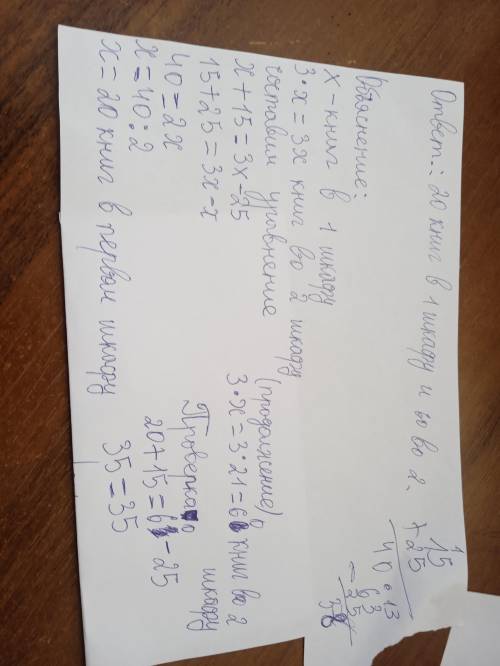 Ответ: 20 книг в 1 шкафу и 60 во 2.
Объяснение:
х - книг в 1 шкафу
3·х = 3х книг во 2 шкафу
Составим уравнение
х + 15 = 3х - 25
15 + 25 = 3х - х
40 = 2х
х = 40 : 2
х = 20 книг в первом шкафу
(продолжение)
3·х = 3·21 = 60 книг во 2
шкафу
Проверка
20 + 15 = 60 - 25
35 = 35
15
+ 25
40
63
- 25
38